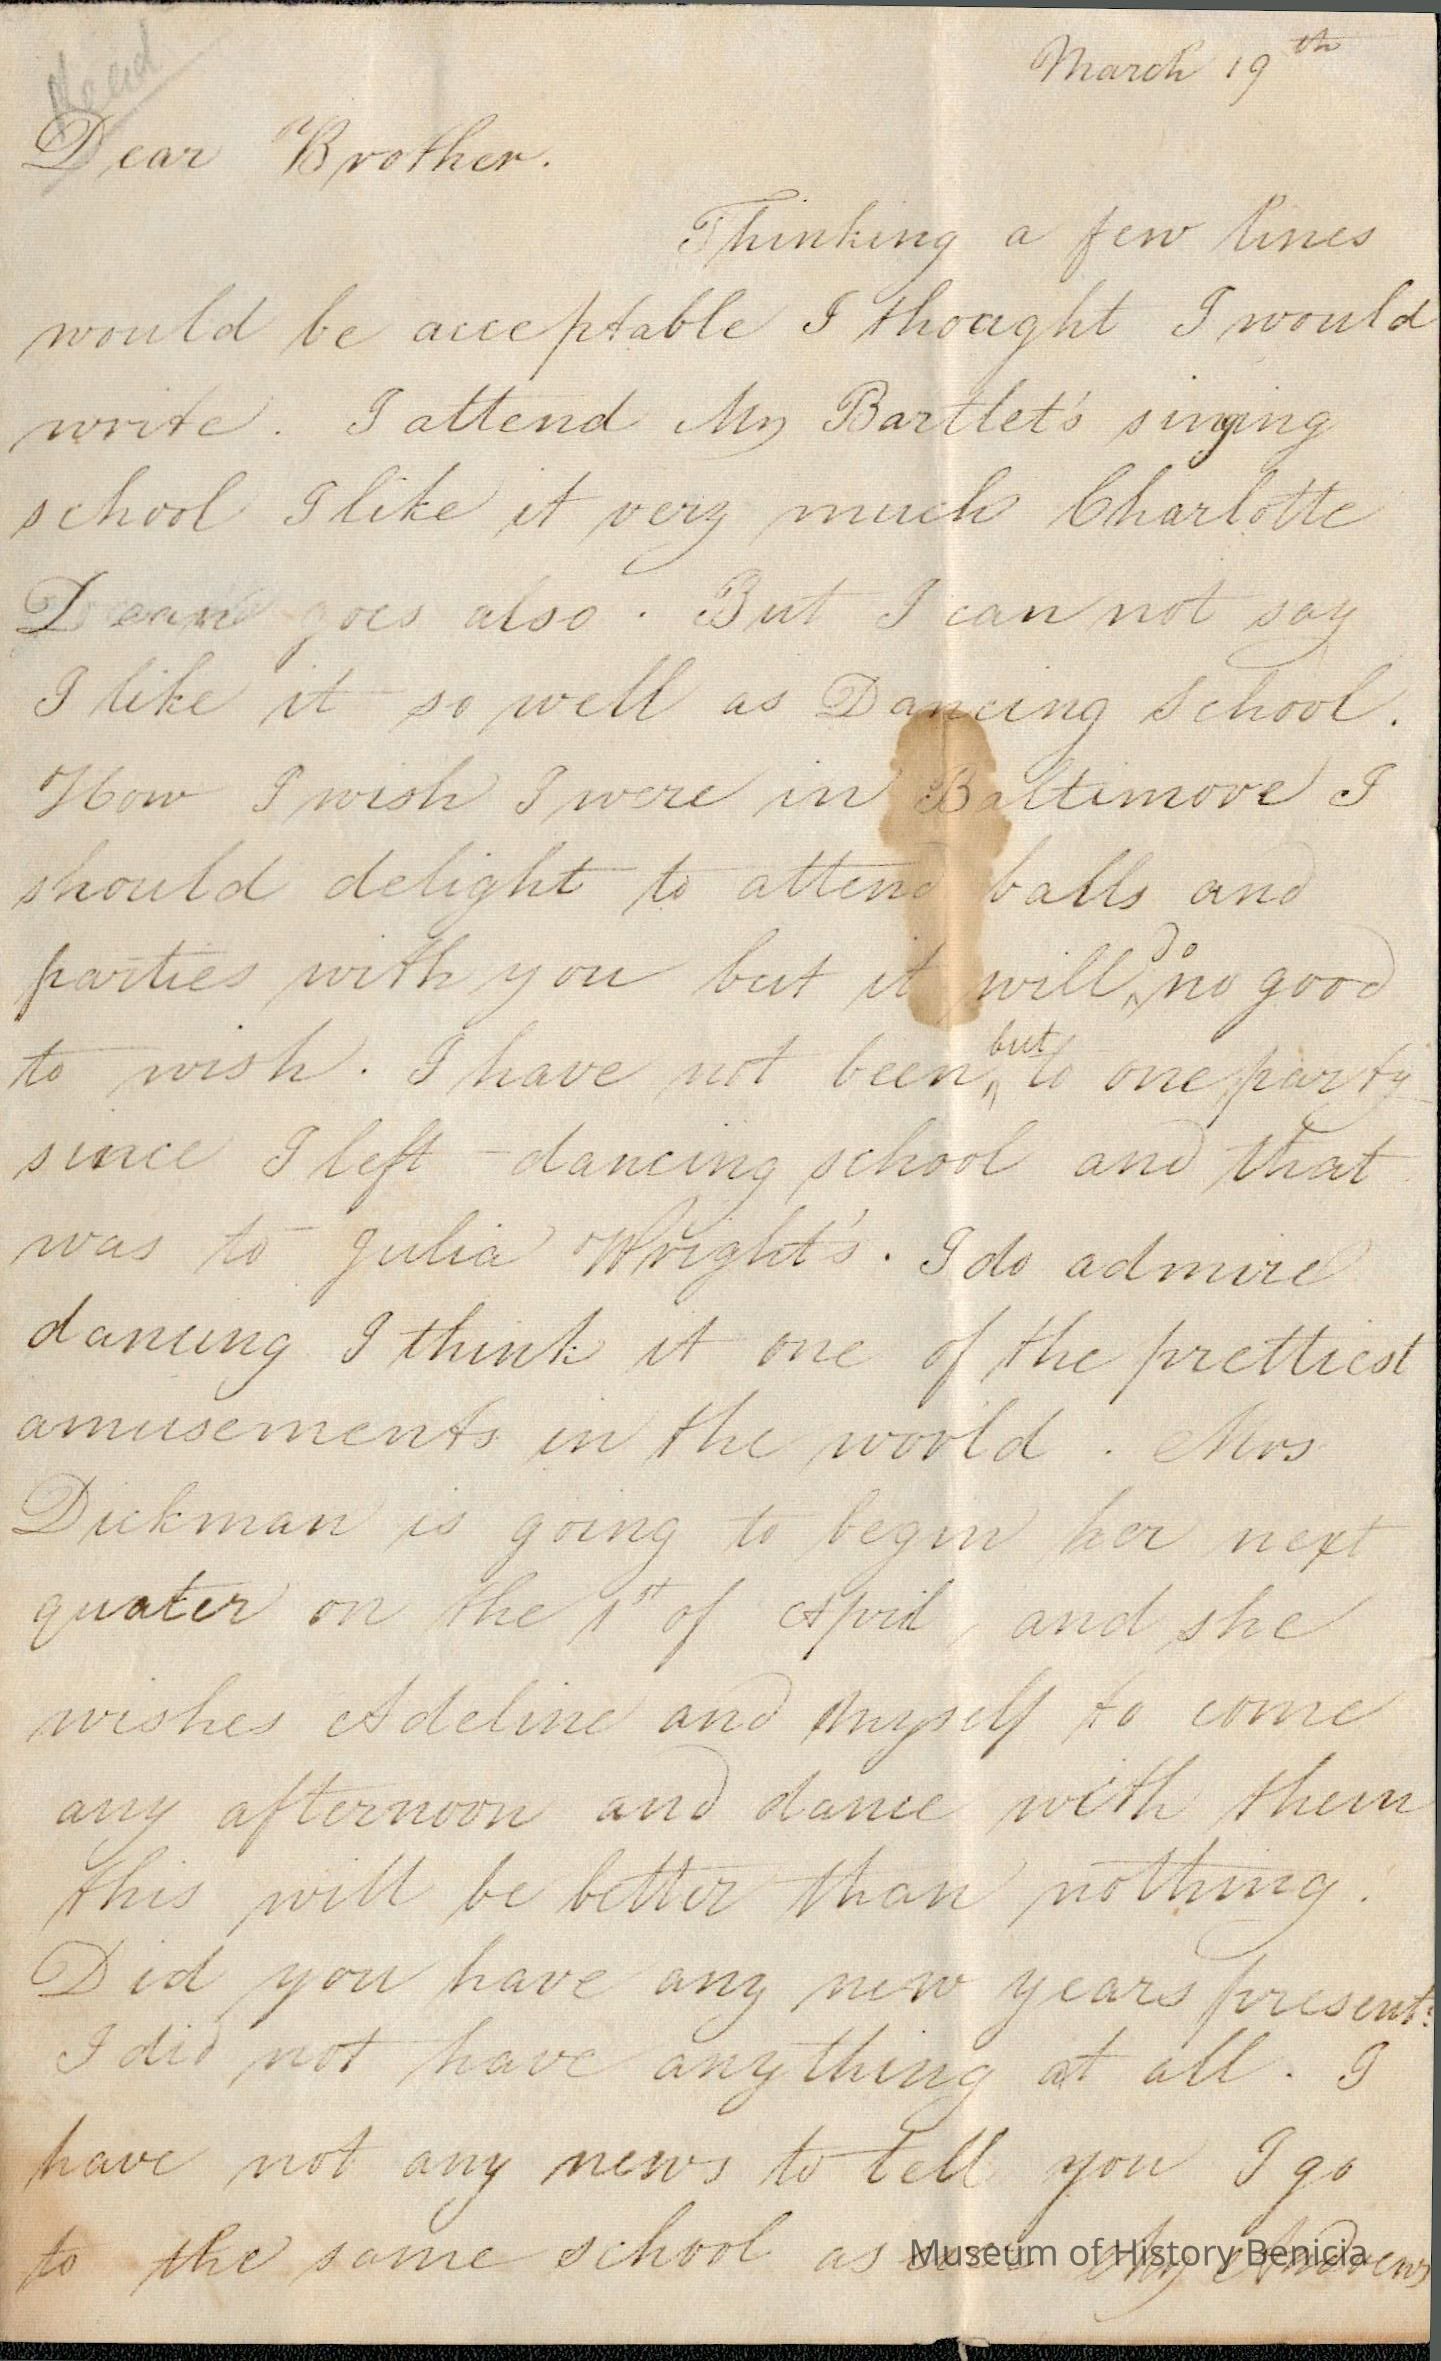 March 19th
Dear Brother.
Thinking a few lines
would be acceptable I thought I would
write. I attend Mr Bartlet's singing
school I like it very much Charlotte
Deane goes also. But I can not say
I like it so well as Dancing School.
How I wish I were in Baltimore I
should delight to attend balls and
parties with you but it will do no good
to wish. I have not been but to one party
since I left dancing school and that
was to Julia Wright's. I do admire
dancing I think it one of the prettiest
amusements in the world. Mrs
Dickman is going to begin her next
quater on the 1st of April, and she
wishes Adeline and myself to come
any afternoon and dance with them
this will be better than nothing.
Did you have any new years present?
I did not have anything at all. I
have not any news to tell you I go
to the same school as Mr Andrews
Museum of History Benicia